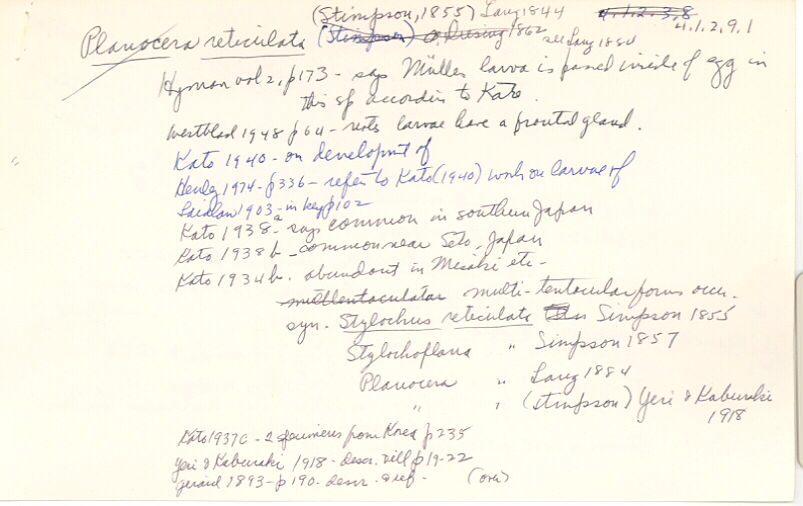 (Stimpson, 1855) Lang 1844 4.1.2.3.8
Planocera reticulata (Stimpson) 1862 see Lang 1884 4.1.2.9.1
Hyman vol 2, p173 - says Müller larva is passed inside of egg in
this sp according to Kato.
Westblad 1948 p64 - notes larvae have a frontal gland.
Kato 1940 - on developmt of
Henley 1974 - p336 - refer to Kato (1940) work on larvae of
Laidlaw 1903 - in key p102
Kato 1938a - says common in southern Japan
Kato 1938b - common near Seto, Japan
Kato 1934b. abundant in Misaki etc -
multitentaculatar multi-tentacular forms occur.
syn. Stylochus reticulata Simpson 1855
Stylochoplana " Simpson 1857
Planocera " Lang 1884
" " (Stimpson) Yeri & Kaburaki
1918
Kato 1937c - 2 specimens from Korea p235
Yeri & Kaburaki 1918 - descr. ill p19-22
Gerard 1893 - p190. descr. & ref - (over)